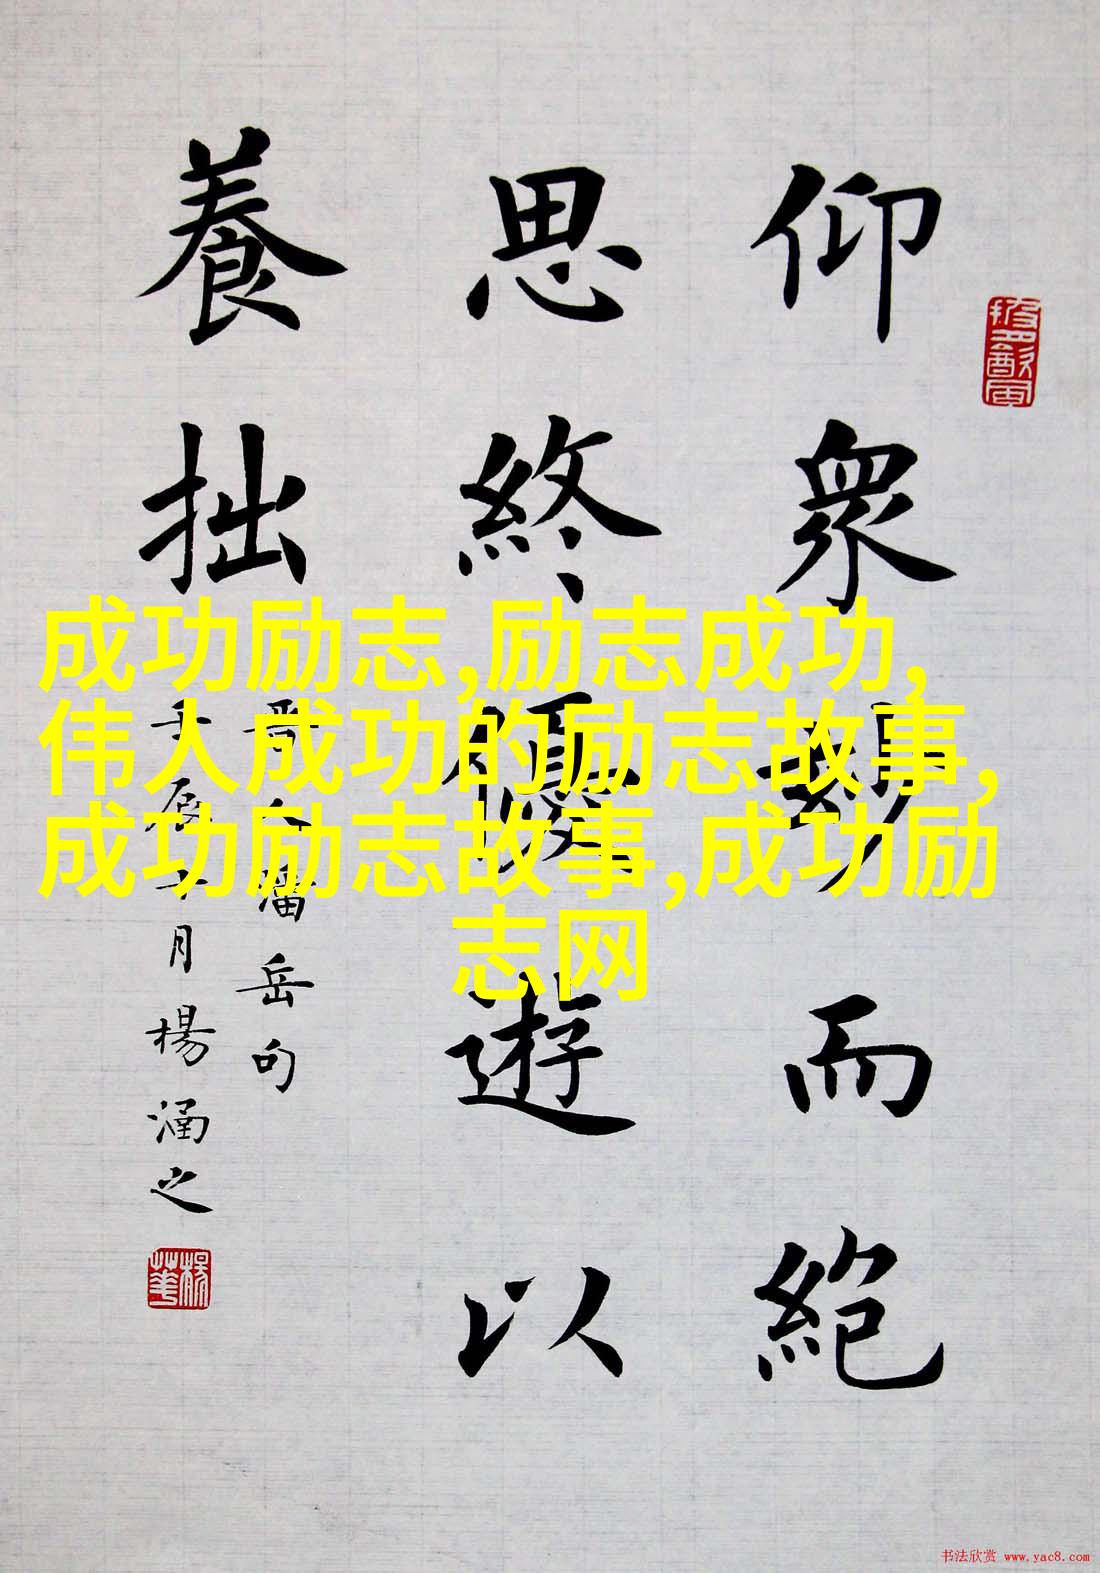 仰衆妙而絶
思終優遊以
養拙
晋人潘岳句
壬辰十月楊涵之
成功励志,励志成功,
伟人成功的励志故事,
成功励志故事,成功励
志网
书法欣赏 www.yac8.com